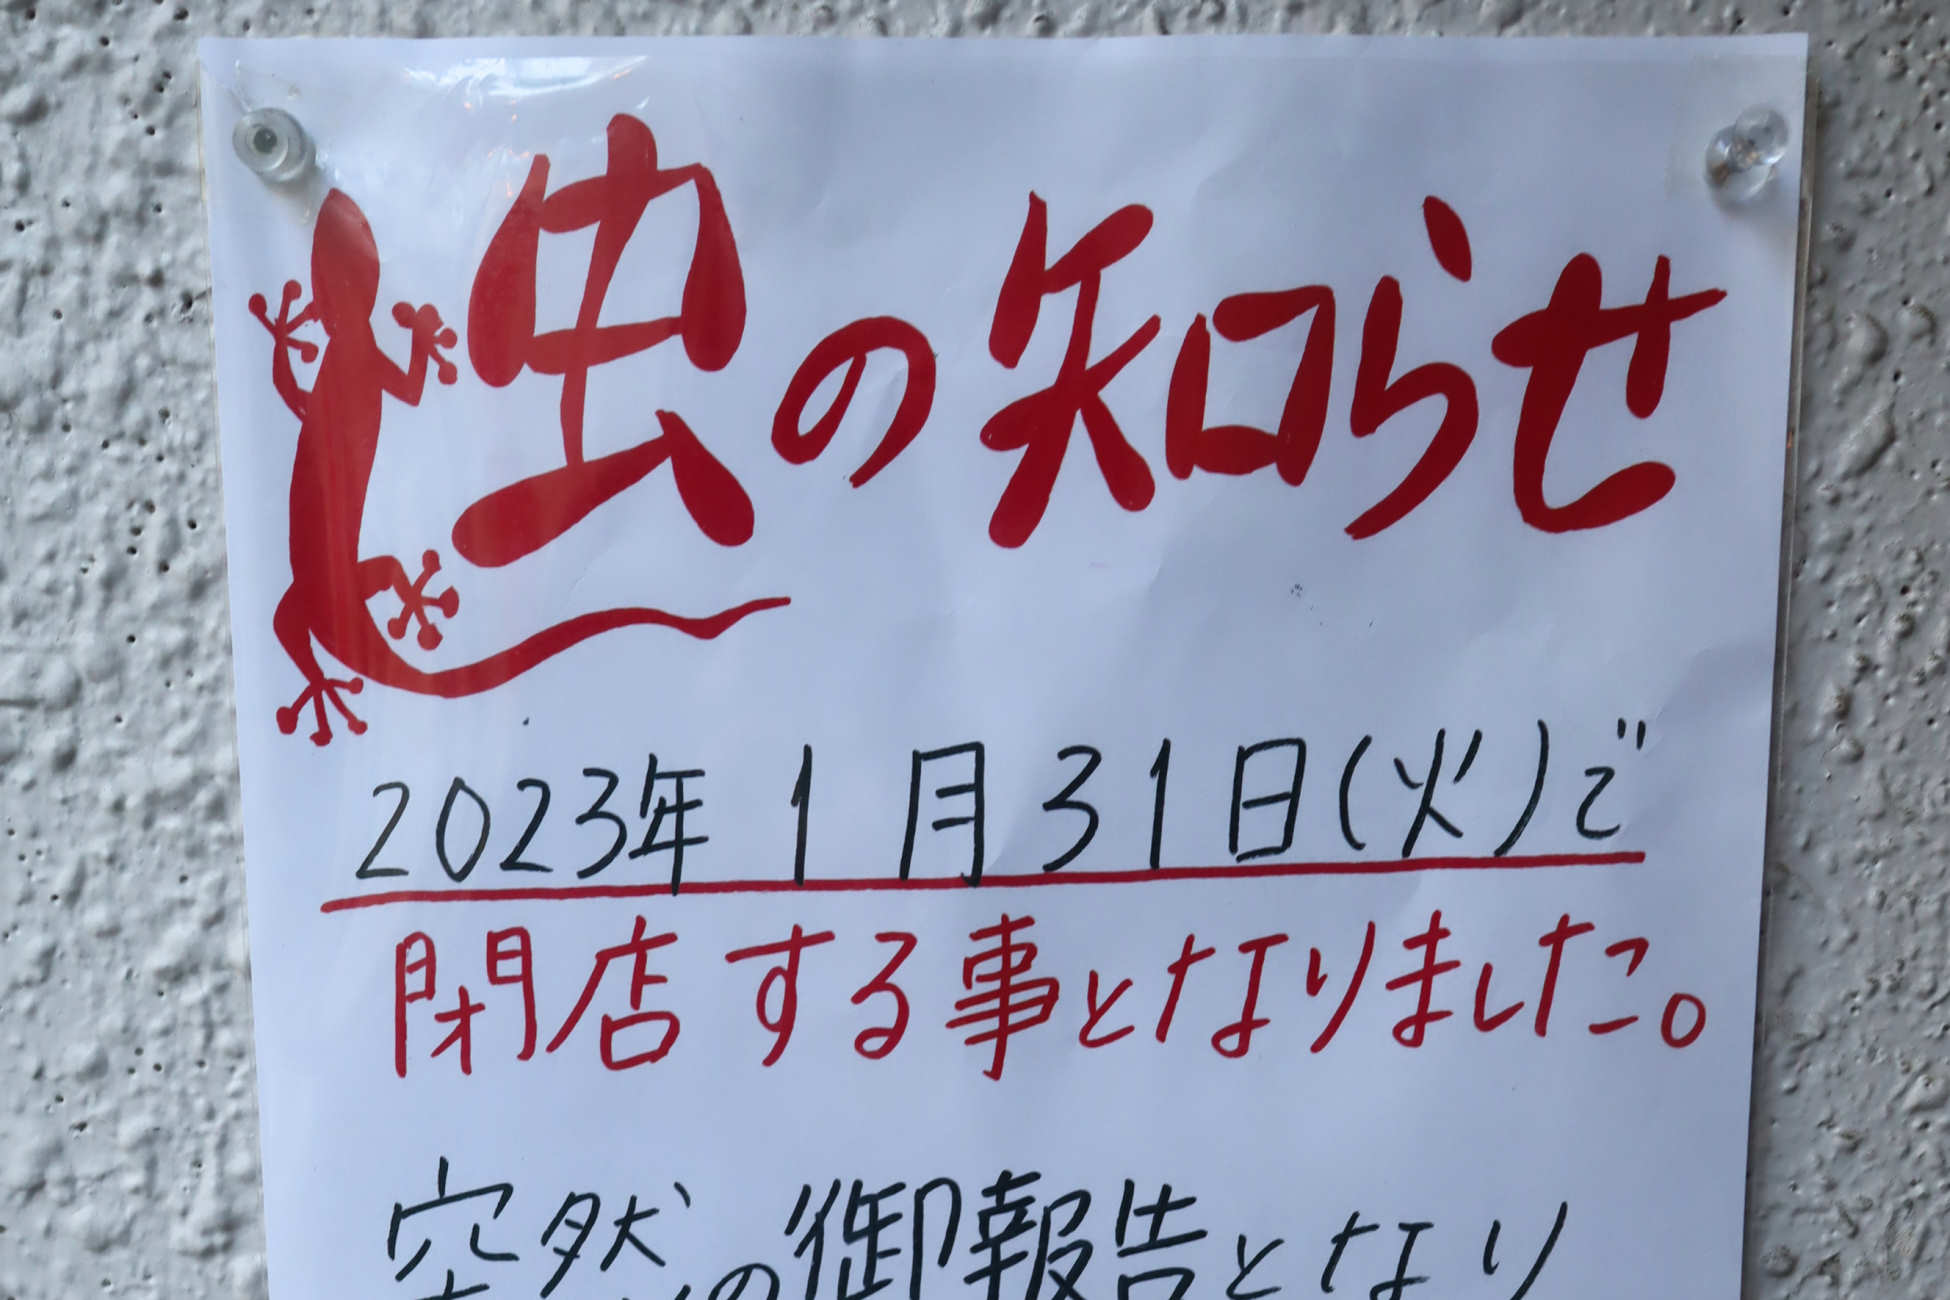 虫の知らせ
2023年 1月31日(火)で
閉店する事となりました。
突然の御報告となり